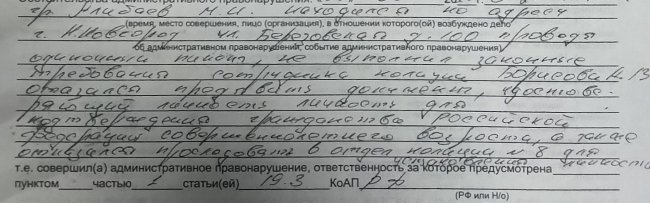 гр. Улыбаев М.И. находился по адресу
(время, место совершения, лицо (организация), в отношении которого(ой) возбуждено дело
г. Н.Новгород ул. Березовская д. 100 проводя
об административном правонарушении, событие административного правонарушения)
одиночный пикет, не выполнил законные
требования сотрудника полиции Борисова
отказался предъявить документ, удостове-
ряющий личность личность для
подтверждения гражданства Российской
Федерации совершеннолетнего возроста, а также
отказался проследовать в отдел полиции № 8 для
установления личности
т.е. совершил(а) административное правонарушение, ответственность за которое предусмотрена
пунктом частью 1 статьи(ей) 19.3 КоАП РФ
(РФ или Н/о)